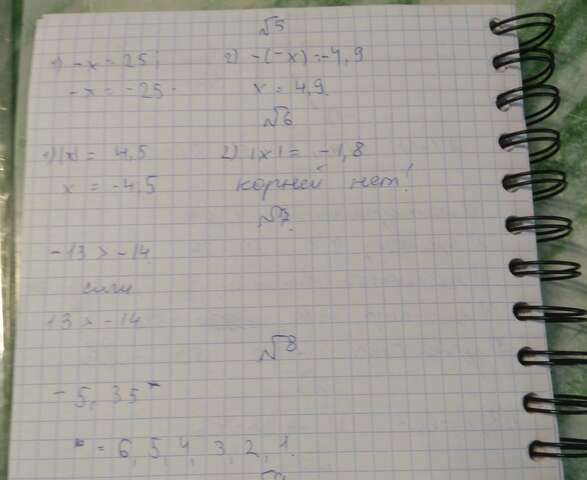 №5
1) -x = 25; 2) -(-x) = -4,9
-x = -25 x = 4,9.
№6
1) |x| = 4,5 2) |x| = -1,8
x = -4,5 корней нет!
№7.
-13 > -14
или
13 > -14
№8.
-5, 35*
* = 6, 5, 4, 3, 2, 1.